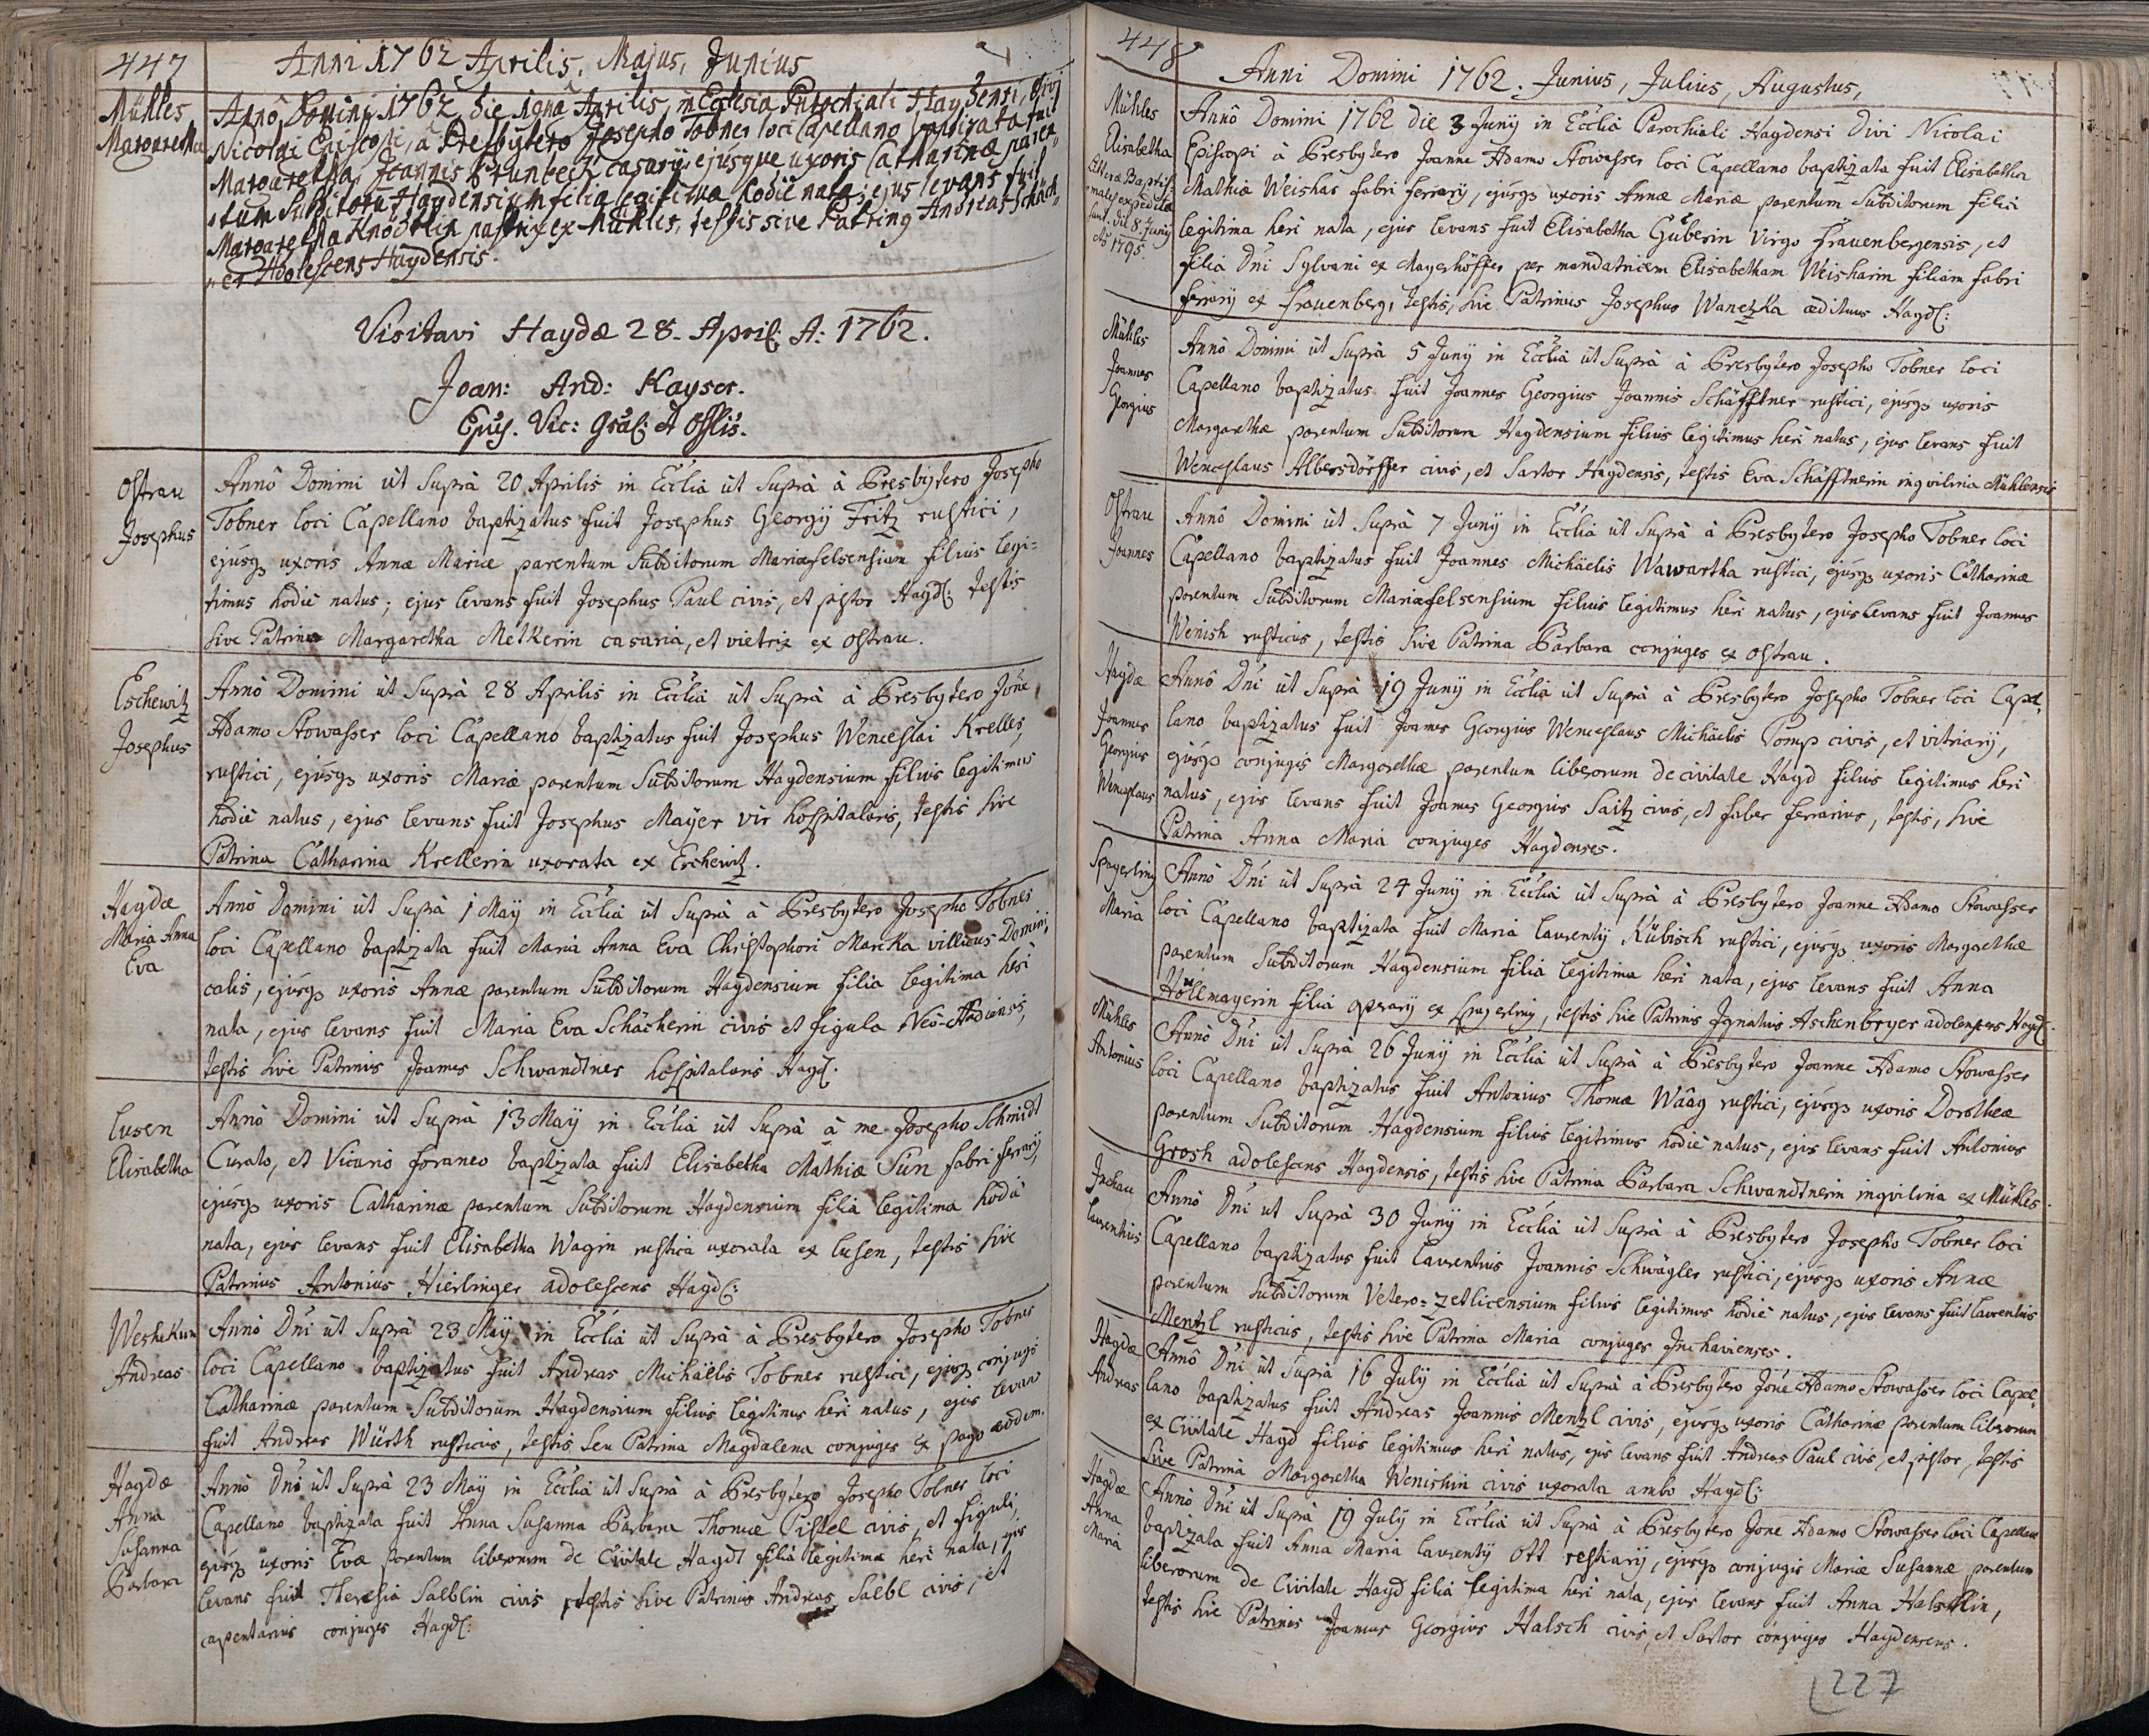 447
Anni 1762 Aprilis, Majus, Junius
Mühles
Margaretha
Annô Domini 1762 die 19na Aprilis, in Ecclesia Parochiali Haydensi, Divi
Nicolai Episcopi, à Presbÿtero Josepho Tobner loci Capellano baptizata fuit
Margaretha, Joannis casarÿ, ejusque uxoris Catharinæ paren„
„tum Subditorũ Haydensium filia legitima hodiè nata; ejus levans fuit
Margaretha Knödtlin ex Mühles, testis sive Patrinꝯ Andreas Schäch„
„er Adolescens Haydensis.
Visitavi Haydæ 28. April: A: 1762.
Joan: And: Kayser.
Epus. Vic: Gräl: et Offlis.
Ostrau
Josephus
Annô Domini ùt Suprà 20 Aprilis in Ecclià ùt Suprà à Presbÿtero Josepho
Tobner loci Capellano baptizatus fuit Josephus Georgÿ Fritz rustici,
ejúsqꝫ uxoris Annæ Mariæ parentum Subditorum Mariæfelsensium filius legi=
timus hodiè natus; ejus levans fuit Josephus Paul civis, et pistor Hayd: testis
sive Patrina Margaretha Metkerin casaria, et vietrix ex Ostrau.
Eschewitz
Josephus
Annô Domini ùt Suprà 28 Aprilis in Ecclià ùt Suprà à Presbÿtero Jône
Adamo Stowasser loci Capellano baptizatus fuit Josephus Wenceslai Kreller,
rustici, ejúsqꝫ uxoris Mariæ parentum Subditorum Haydensium filius legitimus
hodiè natus, ejus levans fuit Josephus Maÿer vir hospitalaris, testis sive
Patrina Catharina Krellerin uxorata ex Erchewitz.
Haydæ
Maria Anna
Eva
Annô Domini ùt Suprà 1 Maÿ in Ecclià ùt Suprà à Presbÿtero Josepho Tobner
loci Capellano baptizata fuit Maria Anna Eva Christophori Mareka villicus Domini„
calis, ejúsqꝫ uxoris Annæ parentum Subditorum Haydensium filia legitima heri
nata, ejus levans fuit Maria Eva Schächerin civis et figula
testis sive Patrinus Joannes Schwandtner hospitalaris Hayd:
Lusen
Elisabetha
Annô Domini ùt Suprà 13 Maÿ in Ecclià ùt Suprà à me Josepho Schmidt
Curato, et Vicario foraneo baptizata fuit Elisabetha Mathiæ Sün fabri ferrarÿ,
ejúsqꝫ uxoris Catharinæ parentum Subditorum Haydensium filia legitima hodiè
nata, ejus levans fuit Elisabetha Wagin rustica uxorata ex Lusen, testis sive
Patrinus Antonius Hierlinger adolescens Hayd:
Weshekun
Andreas
Annô Dni ùt Suprà 23 Maÿ in Ecclià ùt Suprà à Presbÿtero Josepho Tobner
loci Capellano baptizatus fuit Andreas Michäelis Tobner rustici, ejusqꝫ conjugis
Catharinæ parentum Subditorum Haydensium filius legitimus heri natus, ejus levans
fuit Andreas Würth rusticus, testis seu Patrina Magdalena conjuges ex pago eodem.
Haydæ
Anna
Susanna
Barbara
Annô Dni ùt Suprà 23 Maÿ in Ecclià ùt Suprà à Presbÿtero Josepho Tobner loci
Capellano baptizata fuit Anna Susanna Barbara Thomæ Pistel civis, et figuli,
ejusqꝫ uxoris Evæ parentum liberorum de Civitate Haydt filia legitima heri nata, ejus
levans fuit Theresia Salblin civis testis sive Patrinus Andreas Salbl civis, et
capentarius conjuges Hayd:
448
Anni Domini 1762. Junius, Julius, Augustus,
Mühles
Elisabetha
Litteræ Baptis„
„males expeditæ
sunt die 8. Junÿ
Aõ 1795.
Annô Domini 1762 die 3 Junÿ in Ecclià Parochiali Haydensi Divi Nicolai
Episcopi à Presbÿtero Joanne Adamo Stowasser loci Capellano baptizata fuit Elisabetha
Mathiæ Weishar fabri ferrarÿ, ejúsqꝫ uxoris Annæ Mariæ parentum Subditorum filia
legitima heri nata, ejus levans fuit Elisabetha Güberin Virgo Frauenbergensis, et
filia Dni Sylvani ex Mayerhöffer per mandatricem Elisabetham Weisharin filiam fabri
ferrarÿ ex Frauenberg, testis, sive Patrinus Josephus Wanetzka ædituus Hayd:
Mühles
Joannes
Georgius
Annô Domini ùt Suprà 5 Junÿ in Ecclià ùt Suprà à Presbÿtero Josepho Tobner loci
Capellano baptizatus fuit Joannes Georgius Joannis Schäfftner rustici, ejúsqꝫ uxoris
Margarethæ parentum Subditorum Haydensium filius legitimus heri natus, ejus levans fuit
Wenceslaus Albersdörffer civis, et Sartor Haydensis, testis Eva Schäfftnerin inqvilina Mühlensis
Ostrau
Joannes
Annô Domini ùt Suprà 7 Junÿ in Ecclià ùt Suprà à Presbÿtero Josepho Tobner loci
Capellano baptizatus fuit Joannes Michäelis Wawartha rustici, ejúsqꝫ uxoris Catharinæ
parentum Subditorum Mariæfelsensium filius legitimus heri natus, ejus levans fuit Joannes
Wenish rusticus, testis sive Patrina Barbara conjuges ex Ostrau.
Haydæ
Joannes
Georgius
Wenceslaus
Annô Dni ùt Suprà 19 Junÿ in Ecclià ùt Suprà à Presbÿtero Josepho Tobner loci Capel„
lano baptizatus fuit Joannes Georgius Wenceslaus Michäelis Pomp civis, et vitriarÿ,
ejúsqꝫ conjugis Margarethæ parentum liberorum de civitate Hayd filius legitimus heri
natus, ejus levans fuit Joannes Georgius Saitz civis, et faber ferrarius, testis, sive
Patrina Anna Maria conjuges Haydenses.
Spayerling
Maria
Annô Dni ùt Suprà 24 Junÿ in Ecclià ùt Suprà à Presbÿtero Joanne Adamo Stowasser
loci Capellano baptizata fuit Maria Laurentÿ Kübisch rustici, ejúsqꝫ uxoris Margarethæ
parentum Subditorum Haydensium filia legitima heri nata, ejus levans fuit Anna
Höllmayerin filia operarÿ ex Spayerling, testis sive Patrinus Ignatius Aschenbryer adolescens Hayd:
Mühles
Antonius
Annô Dni ùt Suprà 26 Junÿ in Ecclià ùt Suprà à Presbÿtero Joanne Adamo Stowasser
loci Capellano baptizatus fuit Antonius Thomæ Wââg rustici, ejúsqꝫ uxoris Dorotheæ
parentum Subditorum Haydensium filius legitimus hodiè natus, ejus levans fuit Antonius
Grosh adolescens Haydensis, testis sive Patrina Barbara Schwandtnerin inqvilina ex Mühles.
Inchau
Laurentius
Annô Dni ut Suprà 30 Junÿ in Ecclià ùt Suprà à Presbÿtero Josepho Tobner loci
Capellano baptizatus fuit Laurentius Joannis Schwägler rustici, ejúsqꝫ uxoris Annæ
parentum Subditorum Vetero=Zetlicensium filius legitimus hodiè natus, ejus levans fuit Laurentius
Mentzl rusticus, testis sive Patrina Maria conjuges Inchavienses.
Haydæ
Andreas
Annô Dni ùt Suprà 16 Julÿ in Ecclià ùt Suprà à Presbÿtero Jône Adamo Stowasser loci Capel„
lano baptizatus fuit Andreas Joannis Mentzl civis, ejúsqꝫ uxoris Catharinæ parentum liberorum
ex Civitate Hayd filius legitimus heri natus, ejus levans fuit Andreas Paul civis, et pistor, testis
sive Patrina Margaretha Wenishin civis uxorata ambo Hayd:
Haydæ
Anna
Maria
Annô Dni ùt Suprà 19 Julÿ in Ecclià ùt Suprà à Presbÿtero Jône Adamo Stowasser loci Capellano
baptizata fuit Anna Maria Laurentÿ Ott restiarÿ, ejúsqꝫ conjugis Mariæ Susannæ parentum
liberorum de Civitate Hayd filia legitima heri nata, ejus levans fuit Anna Halschin,
testis sive Patrinus Joannes Georgius Halsch civis, et Sartor conjuges Haydenses.
227